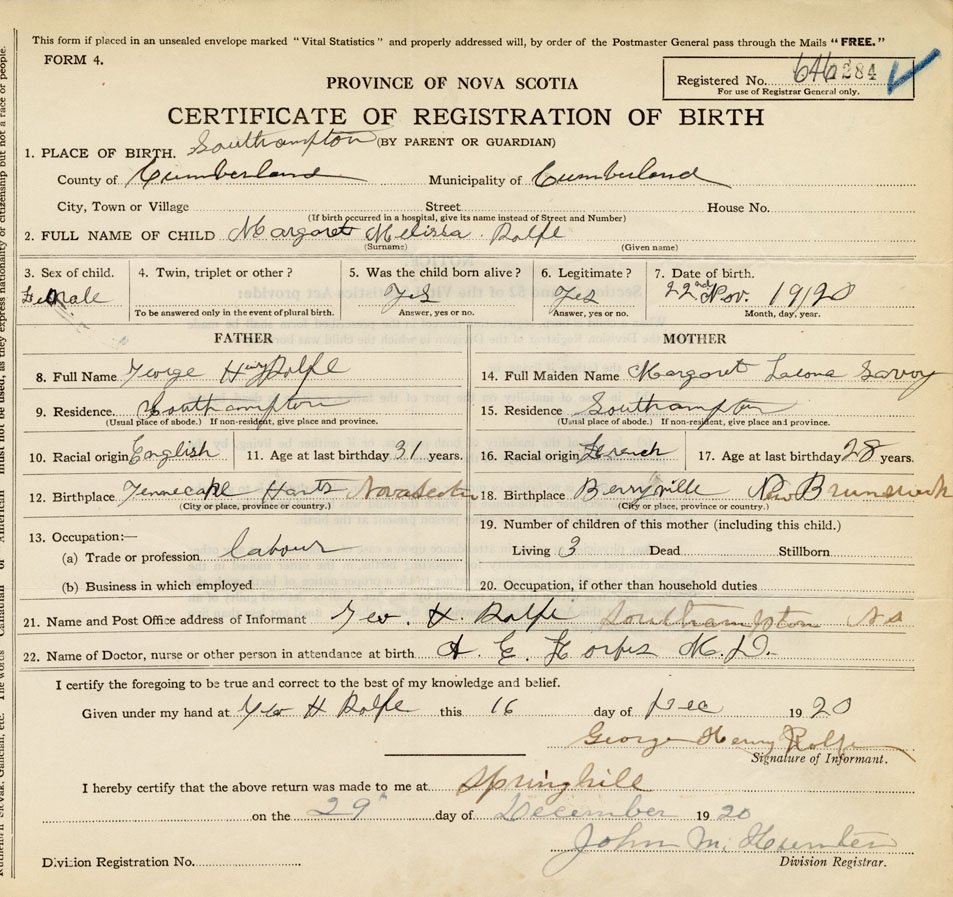 This form if placed in an unsealed envelope marked "Vital Statistics" and properly addressed will, by order of the Postmaster General pass through the Mails "FREE."
FORM 4.
Registered No. 284
For use of Registrar General only.
PROVINCE OF NOVA SCOTIA
CERTIFICATE OF REGISTRATION OF BIRTH
(BY PARENT OR GUARDIAN)
1. PLACE OF BIRTH. Southampton
County of Cumberland Municipality of Cumberland
City, Town or Village Street House No.
(If birth occurred in a hospital, give its name instead of Street and Number)
2. FULL NAME OF CHILD Margaret Melissa Rolfe
(Surname) (Given name)
3. Sex of child. 4. Twin, triplet or other? 5. Was the child born alive? 6. Legitimate? 7. Date of birth.
Female Yes Yes 22nd Nov. 1920
To be answered only in the event of plural birth. Answer, yes or no. Answer, yes or no. Month, day, year.
FATHER MOTHER
8. Full Name George Henry Rolfe 14. Full Maiden Name Margaret Savoy
9. Residence. Southampton 15. Residence Southampton
(Usual place of abode.) If non-resident, give place and province. (Usual place of abode.) If non-resident, give place and province.
10. Racial origin English 11. Age at last birthday 31 years. 16. Racial origin French 17. Age at last birthday 28 years.
12. Birthplace Hants Nova Scotia 18. Birthplace Berryville New Brunswick
(City or place, province or country.) (City or place, province or country.)
13. Occupation:— 19. Number of children of this mother (including this child.)
(a) Trade or profession labour Living 3 Dead Stillborn
(b) Business in which employed 20. Occupation, if other than household duties
21. Name and Post Office address of Informant Geo. H. Rolfe Southampton NS
22. Name of Doctor, nurse or other person in attendance at birth H. E. M.D.
I certify the foregoing to be true and correct to the best of my knowledge and belief.
Given under my hand at Geo H Rolfe this 16 day of Dec 1920
George Henry Rolfe
Signature of Informant.
I hereby certify that the above return was made to me at Springhill
on the 29 day of December 1920
John M. Hunter
Division Registration No. Division Registrar.